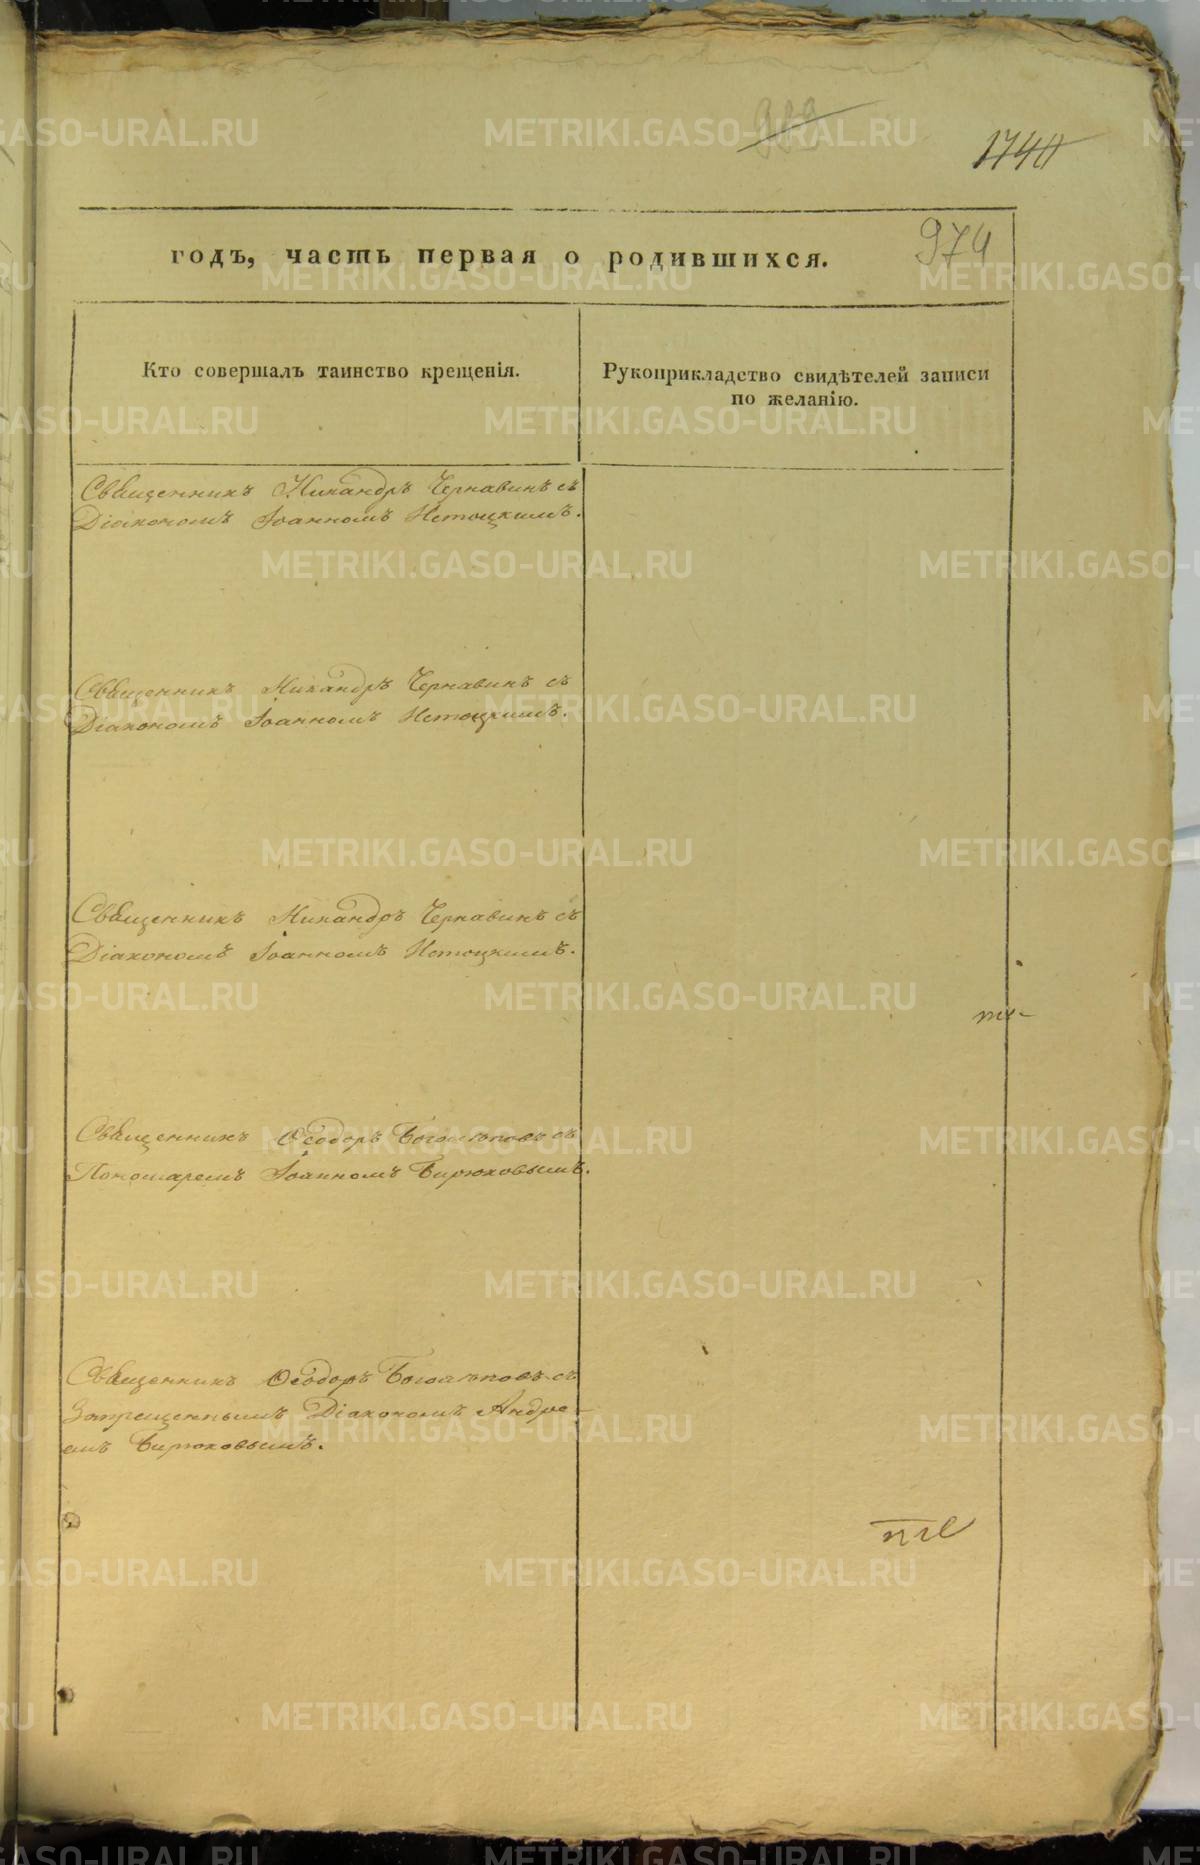 1740
974
годъ, часть первая о родившихся.
Кто совершалъ таинство крещенія.
Рукоприкладство свидѣтелей записи
по желанію.
Священникъ Никандръ Чернавинъ съ
Діакономъ Іоанномъ Нетоцкимъ.
Священникъ Никандръ Чернавинъ съ
Діакономъ Іоанномъ Нетоцкимъ.
Священникъ Никандръ Чернавинъ съ
Діакономъ Іоанномъ Нетоцкимъ.
Священникъ Ѳеодоръ Боголѣповъ съ
Пономаремъ Іоанномъ Бирюковымъ.
Священникъ Ѳеодоръ Боголѣповъ съ
Запрещеннымъ Діакономъ Андре-
емъ Бирюковымъ.
METRIKI.GASO-URAL.RU